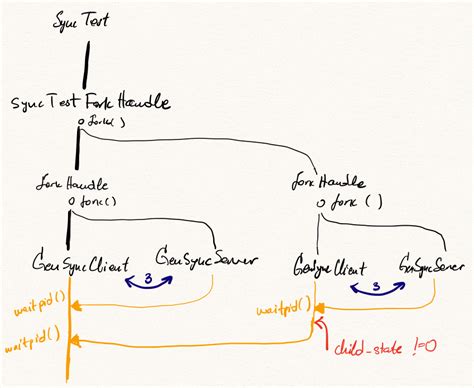 Sync Test
Sync Test Fork Handle
fork()
fork Handle
fork()
fork Handle
fork()
GenSyncClient
GenSyncServer
GenSyncClient
GenSyncServer
3
3
waitpid()
waitpid()
waitpid()
child-state !=0